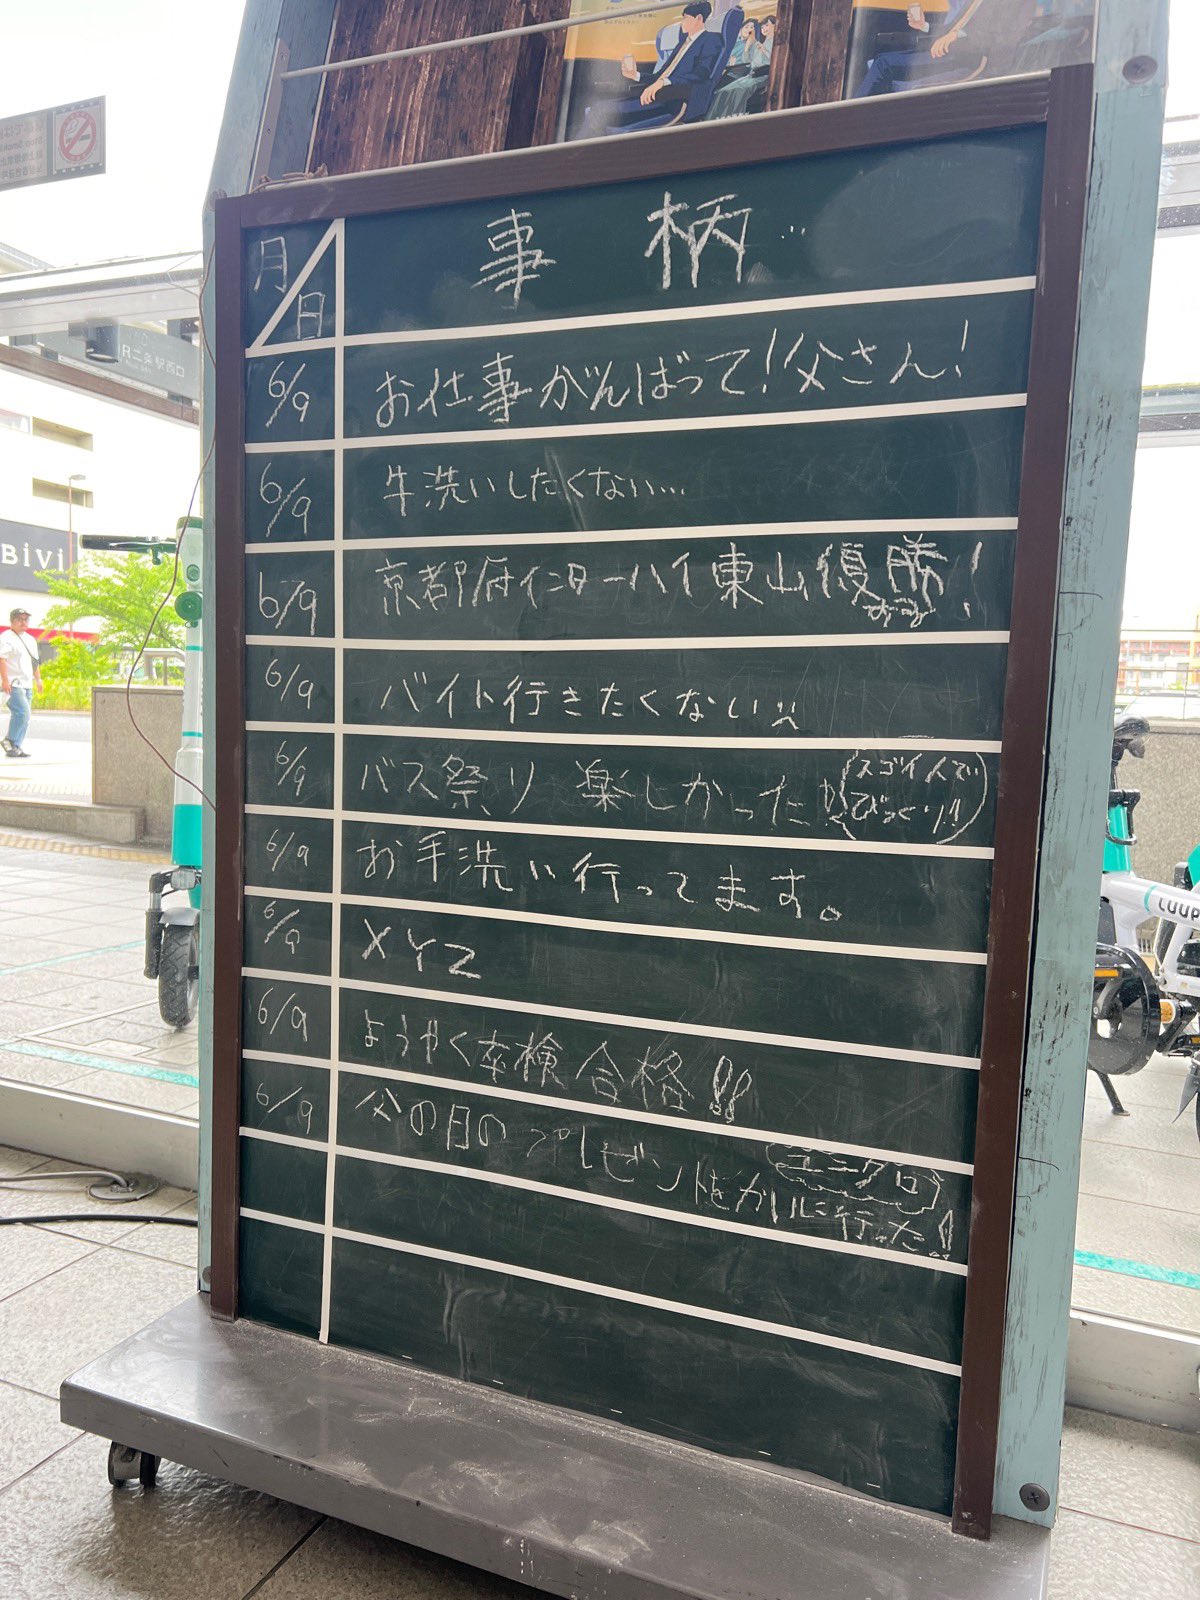 JR二条駅西口
BiVi
月
日
事柄…
6/9
お仕事がんばって!父さん!
6/9
牛洗いしたくない…
6/9
京都府インターハイ東山優勝!
6/9
バイト行きたくない
6/9
バス祭り 楽しかった!!
(スゴイ人で
びっくり!!)
6/9
お手洗い行ってます。
6/9
XYZ
6/9
ようやく卒検合格!!
6/9
父の日のプレゼントをかいに行った!
ユニクロ
LUUP